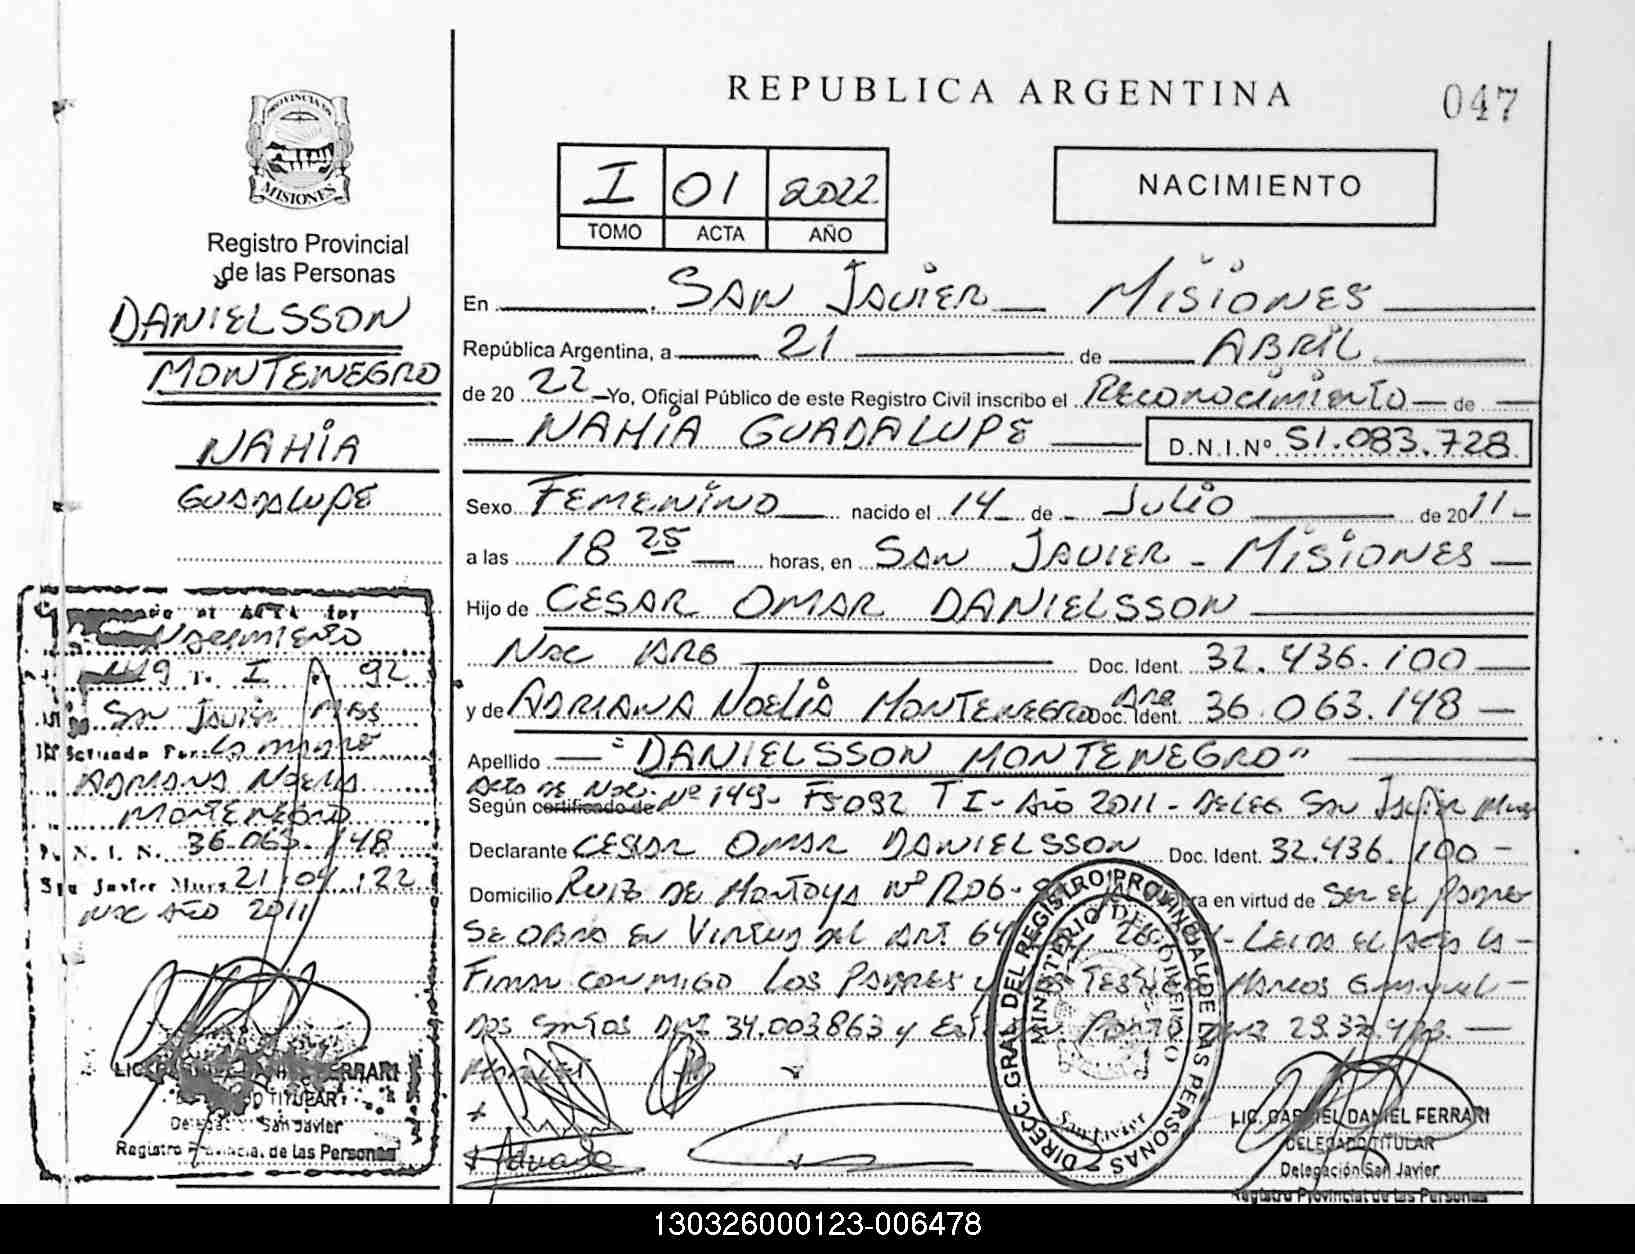 REPUBLICA ARGENTINA
047
PROVINCIA DE
MISIONES
Registro Provincial
de las Personas
DANIELSSON
MONTENEGRO
NAHIA
GUADALUPE
I 01 2022
TOMO ACTA AÑO
NACIMIENTO
En SAN JAVIER MISIONES
República Argentina, a 21 de ABRIL
de 20 22 Yo, Oficial Público de este Registro Civil inscribo el Reconocimiento de
NAHIA GUADALUPE D.N.I.Nº 51.083.728
Sexo FEMENINO nacido el 14 de Julio de 2011
a las 18 25 horas, en SAN JAVIER - MISIONES
Hijo de CESAR OMAR DANIELSSON
Nac ARG Doc. Ident. 32.436.100
y de ADRIANA NOELIA MONTENEGRO Arg Doc. Ident. 36.063.148
Apellido "DANIELSSON MONTENEGRO"
Acta de Nac.
Según certificado de Nº 149- Fº 092 T I- Año 2011 - Deleg San Javier Mnes
Declarante CESAR OMAR DANIELSSON Doc. Ident. 32.436.100
Domicilio Ruiz de Montoya Nº 1206 - en virtud de Ser el Padre
Se obra en Virtud del Art 64 - Leida el acta la
Firman conmigo los Padres y Testigos Marcos Emanuel
Dos Santos DNI 34.003.863 y
ACTA
Nacimiento
T. I 92
San Javier Mnes
Actuado Por: La madre
ADRIANA NOELIA
MONTENEGRO
D. N. I. N. 36.063.148
San Javier Mnes 21/04/22
Nac Año 2011
FERRARI
TITULAR
San Javier
Registro Provincial de las Personas
DIREC. GRAL DEL REGISTRO PROVINCIAL DE LAS PERSONAS
MINISTERIO DE GOBIERNO
San Javier
LIC. GABRIEL DANIEL FERRARI
DELEGADO TITULAR
Delegación San Javier
Registro Provincial de Las Personas
130326000123-006478